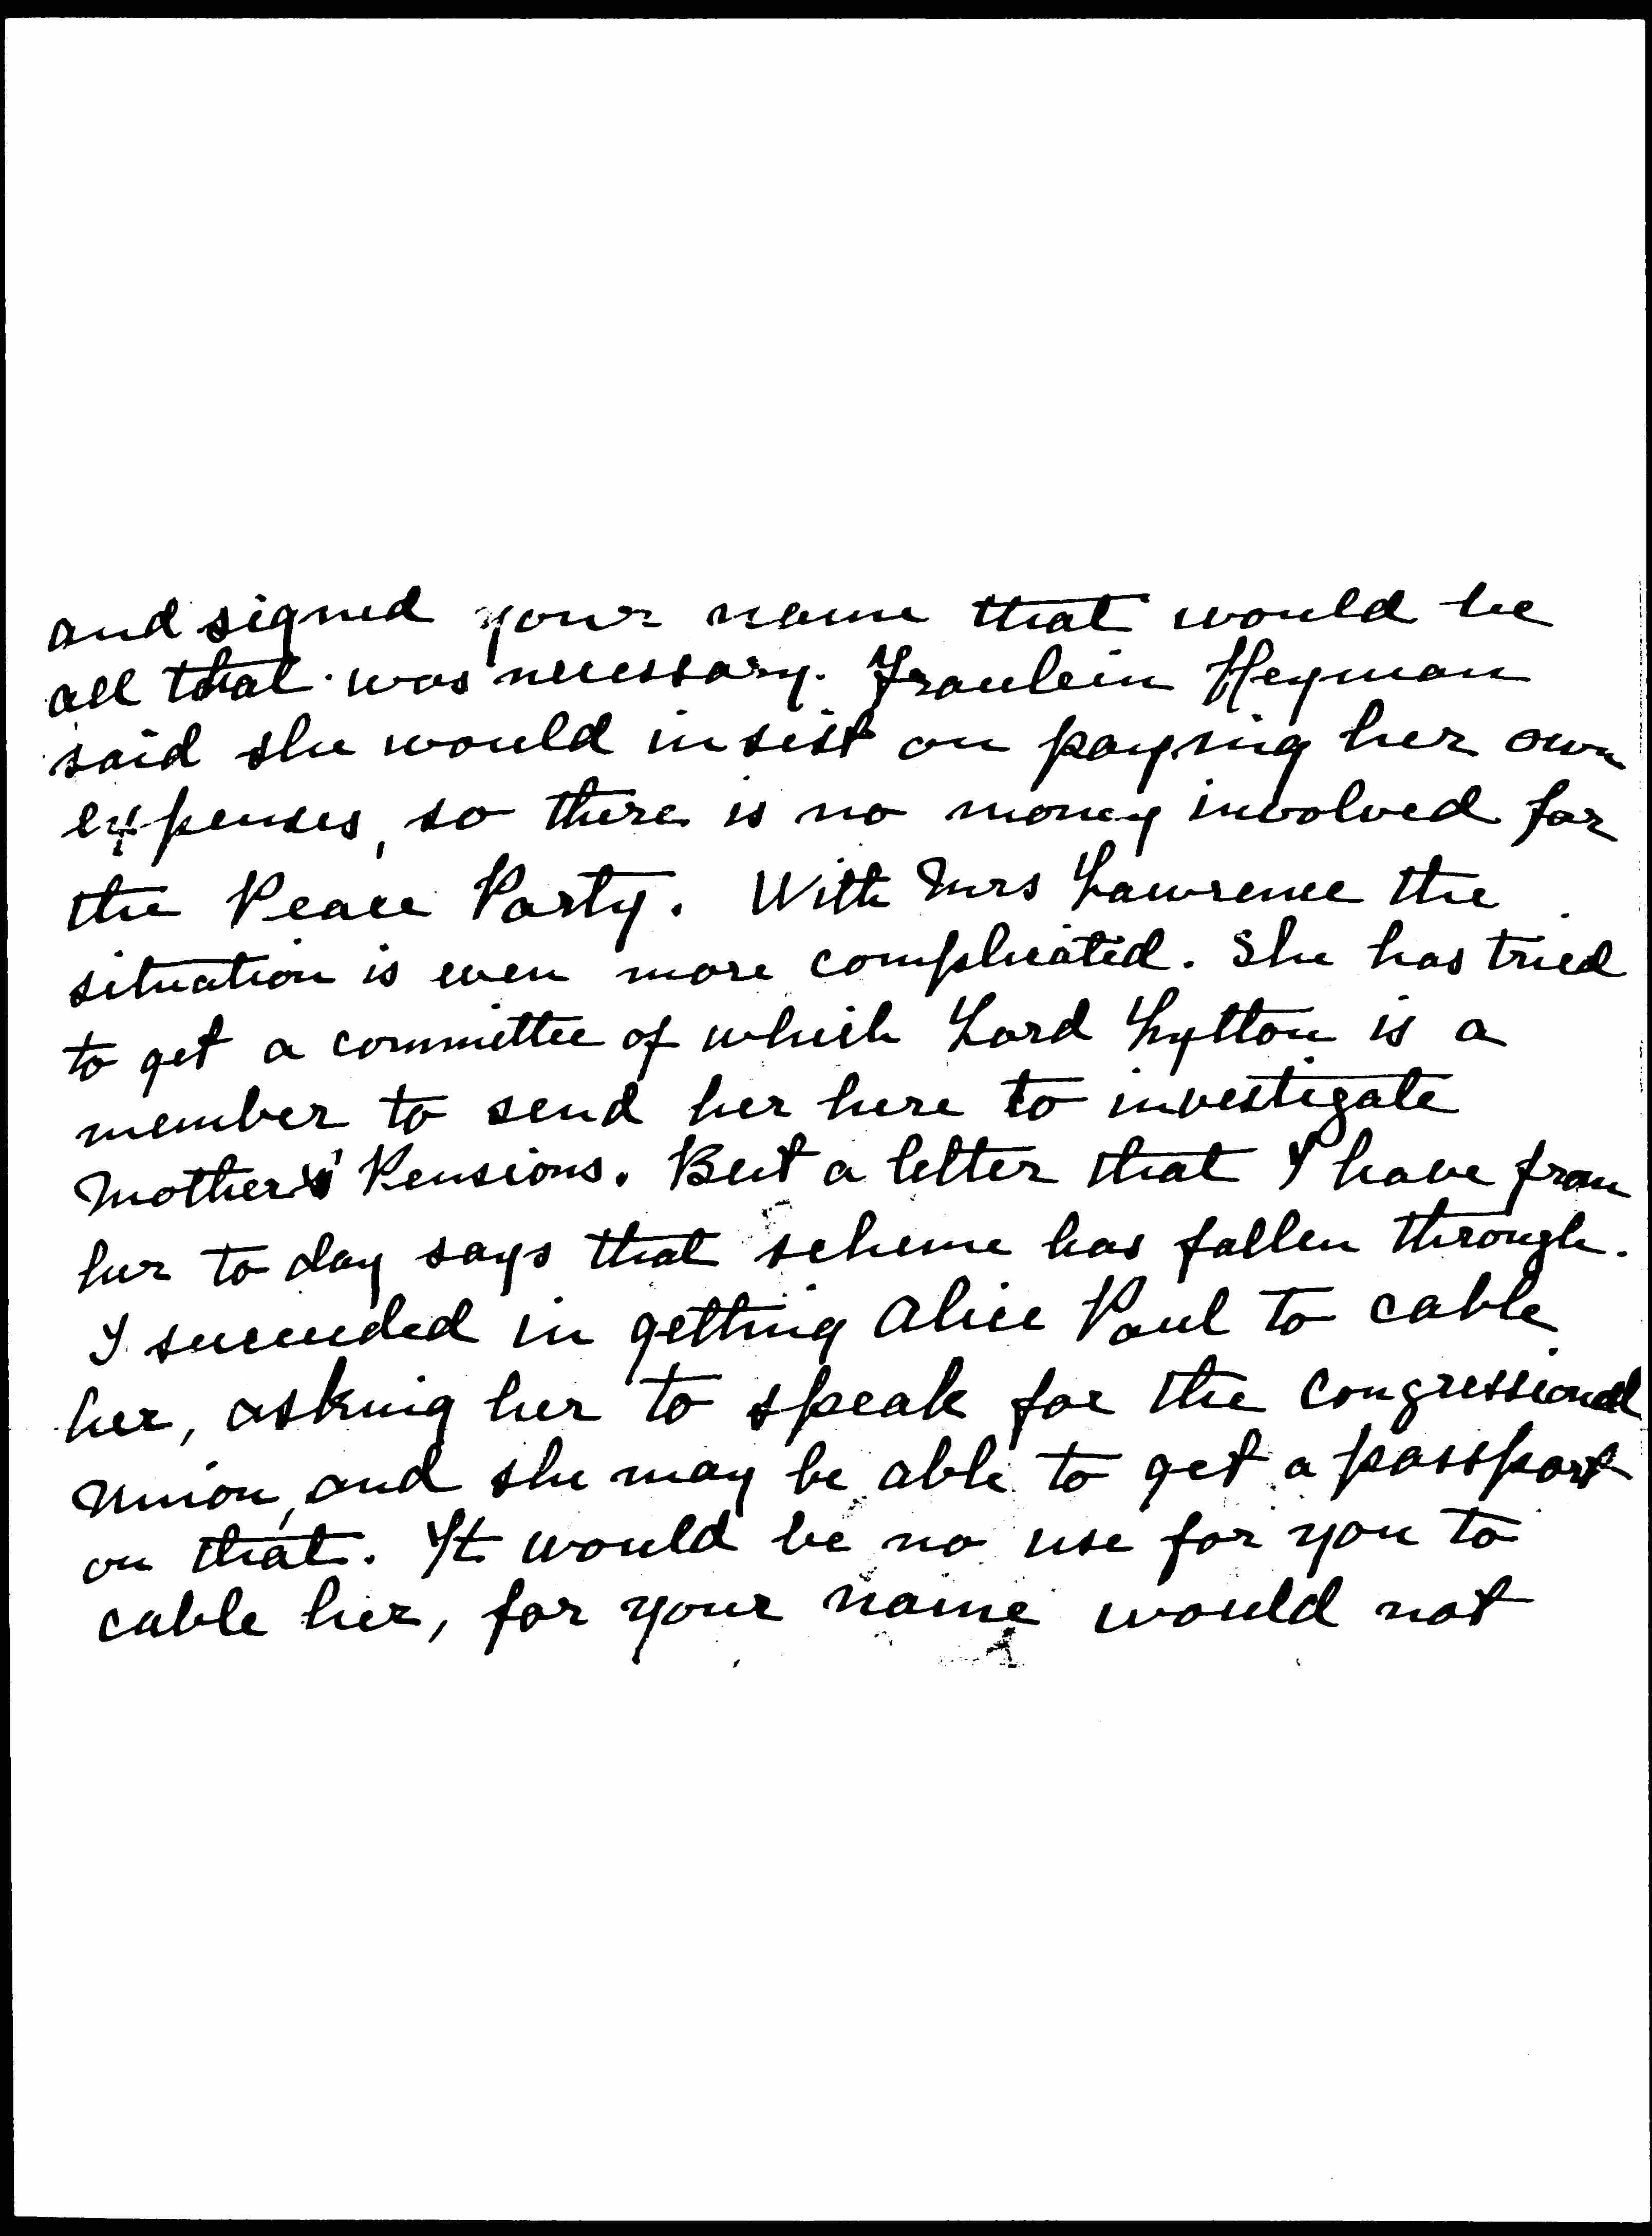 and signed your name that would be
all that was necessary. Fraulein Heyman
said she would insist on paying her own
expenses, so there is no money involved for
the Peace Party. With Mrs Lawrence the
situation is even more complicated. She has tried
to get a committee of which Lord Lytton is a
member to send her here to investigate
Mothers' Pensions. But a letter that I have from
her to day says that scheme has fallen through.
I succeeded in getting Alice Paul to cable
her, asking her to speak for the Congressional
Union, and she may be able to get a passport
on that. It would be no use for you to
cable her, for your name would not